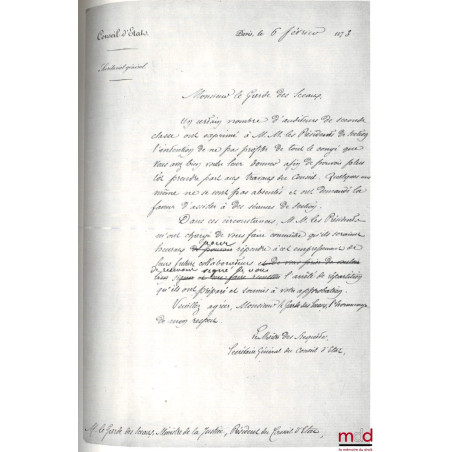 Conseil d'Etat.
Paris, le 6 février 1873
Secrétariat général.
Monsieur le Garde des Sceaux,
Un certain nombre d'auditeurs de seconde
classe ont exprimé à M.M. les Présidents de Section
l'intention de ne pas profiter de tout le congé que
vous avez bien voulu leur donner afin de pouvoir plutôt
prendre part aux travaux du Conseil. Quelques uns
même ne se sont pas absentés et ont demandé la
faveur d'assister à des séances de Section.
Dans ces circonstances, M.M. les Présidents
m'ont chargé de vous faire connaître qu'ils seraient
heureux pour répondre à cet empressement de
leurs futurs collaborateurs
de recevoir signé par vous l'arrêté de répartition
qu'ils ont préparé et soumis à votre approbation.
Veuillez agréer, Monsieur le Garde des Sceaux, l'hommage
de mon respect.
Le Maître des Requêtes,
Secrétaire Général du Conseil d'Etat,
M. le Garde des Sceaux, Ministre de la Justice, Président du Conseil d'Etat,
mdd
la mémoire du droit